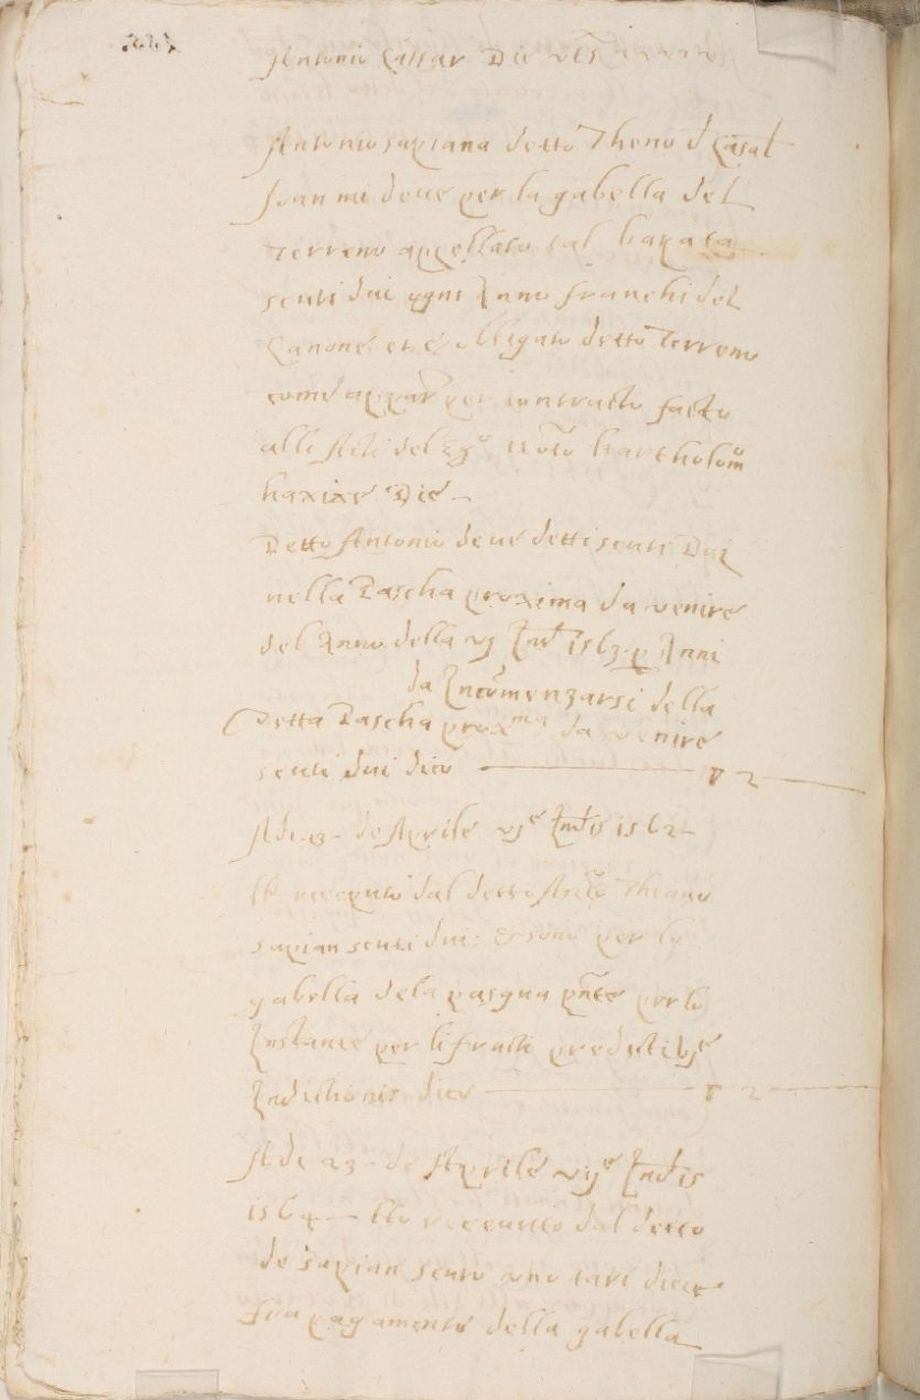 Antonio Cassar Die
Antonio sapiana detto Theno d Casal
Ioanni deue per la gabella del
Terreno appellato tal hapata
scuti dui ogni Anno franchi del
Canone et e obligato detto Terreno
come appar per contracto facto
alli Acti del Egº Noto Bartholom
haxixe Die
Detto Antonio deue detti scuti Dui
nella Pascha proxima da venire
del Anno della vj Ind 1563 p Anni
da Incumenzarsi della
Detta Pascha proxma da venire
scuti dui dico ——— 2
Adi 3 de Aprile vje Indis 1562
Ho receputo dal detto Antº Theno
sapian scuti dui et sono per la
gabella dela pasqua pnte per lo
Instante per li fructi predicti
Indictionis dico ——— 2
Adi 23 de Aprile vije Indis
1564 — Ho receputo dal detto
de sapian scuto uno tari diece
pagamento della gabella